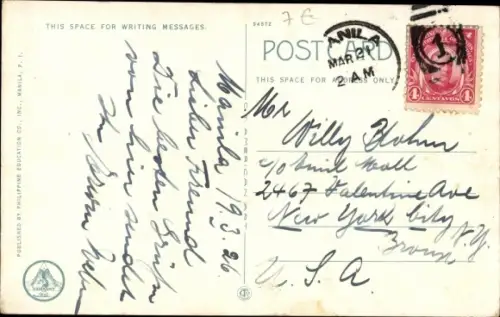 THIS SPACE FOR WRITING MESSAGES.
94572
7 €
POST CARD
THIS SPACE FOR ADDRESS ONLY.
MANILA
MAR 21
2 AM
1
4 CENTAVOS 4
Manila 19.3.26
Lieber Freund
Die besten Grüße
von hier sendet
Mr
Willy Blohm
c/o Emil Moll
2467 Valentine Ave
New York City
N.Y.
Bronx
U. S. A
PUBLISHED BY PHILIPPINE EDUCATION CO., INC., MANILA, P. I.